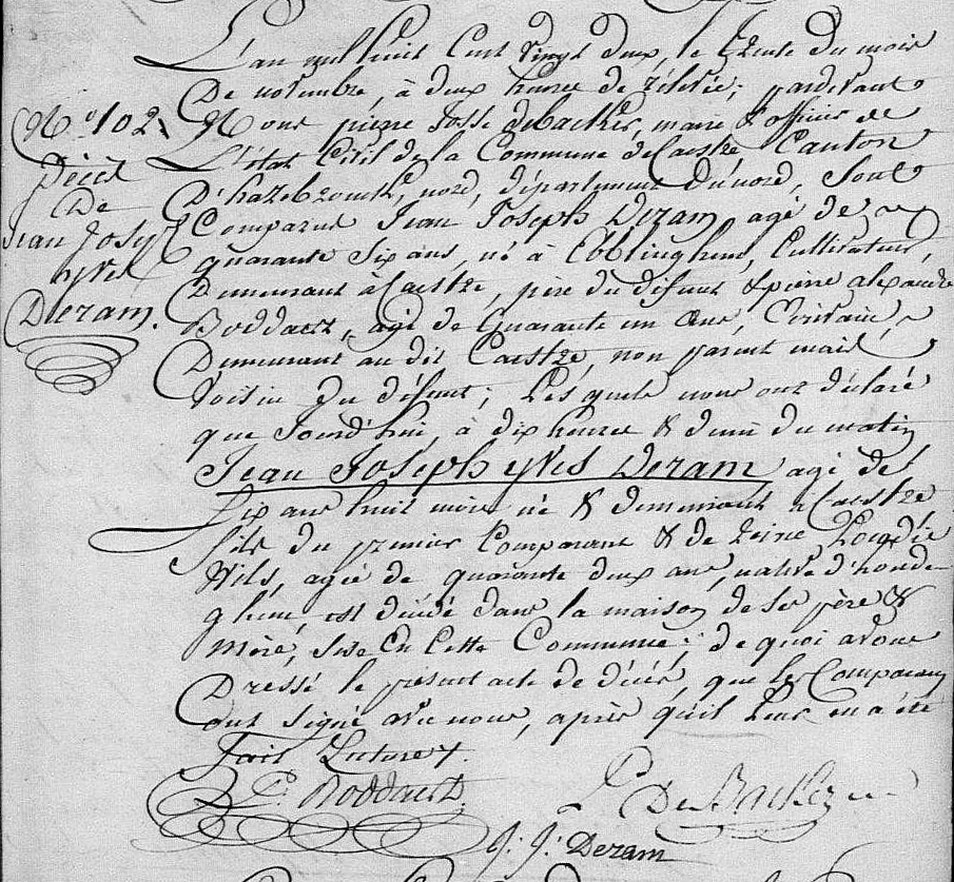 L'an mil huit Cent vingt deux, le trente du mois
De novembre, à deux heures de rélévée; pardevant
N.º 102.
Nous pierre Josse debacker, maire & officier de
L'état Civil de la Commune de Caestre Canton
Décès
D'hazebrouck, nord, département du nord, Sont
De
Comparus Jean Joseph Deram, agé de
Jean Joseph
quarante Six ans, né à Ebblinghem, Cultivateur,
yves
Demeurant à Caestre, père du défunt & pierre alexandre
Deram.
Boddaert, agé de Quarante un ans, Ecrivain,
Demeurant au dit Caestre, non parent mais
Voisin du défunt; Lesquels nous ont déclaré
que Jourd'hui, à dix heures & demi du matin
Jean Joseph yves Deram agé de
Six ans huit mois né & demeurant à Caestre
fils du premier Comparant & de
Wils, agée de quarante deux ans, native d'honde-
ghem, est décédé dans la maison de Ses père &
Mère, Sise En Cette Commune; de quoi avons
Dressé le présent acte de décès, que les Comparans
ont Signé avec nous, après qu'il Leur en a été
fait Lecture.
P. Boddaert
DeBacker
J. J. Deram